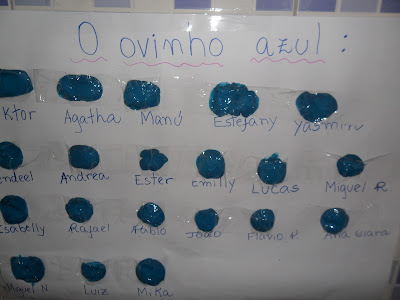 O ovinho azul:
Ktor Agatha Manú Estefany Yasmim
endeel Andrea Ester Emilly Lucas Miguel R.
Isabelly Rafael Pablo João Flávio H. Ana Clara
Miguel N Luiz Mika